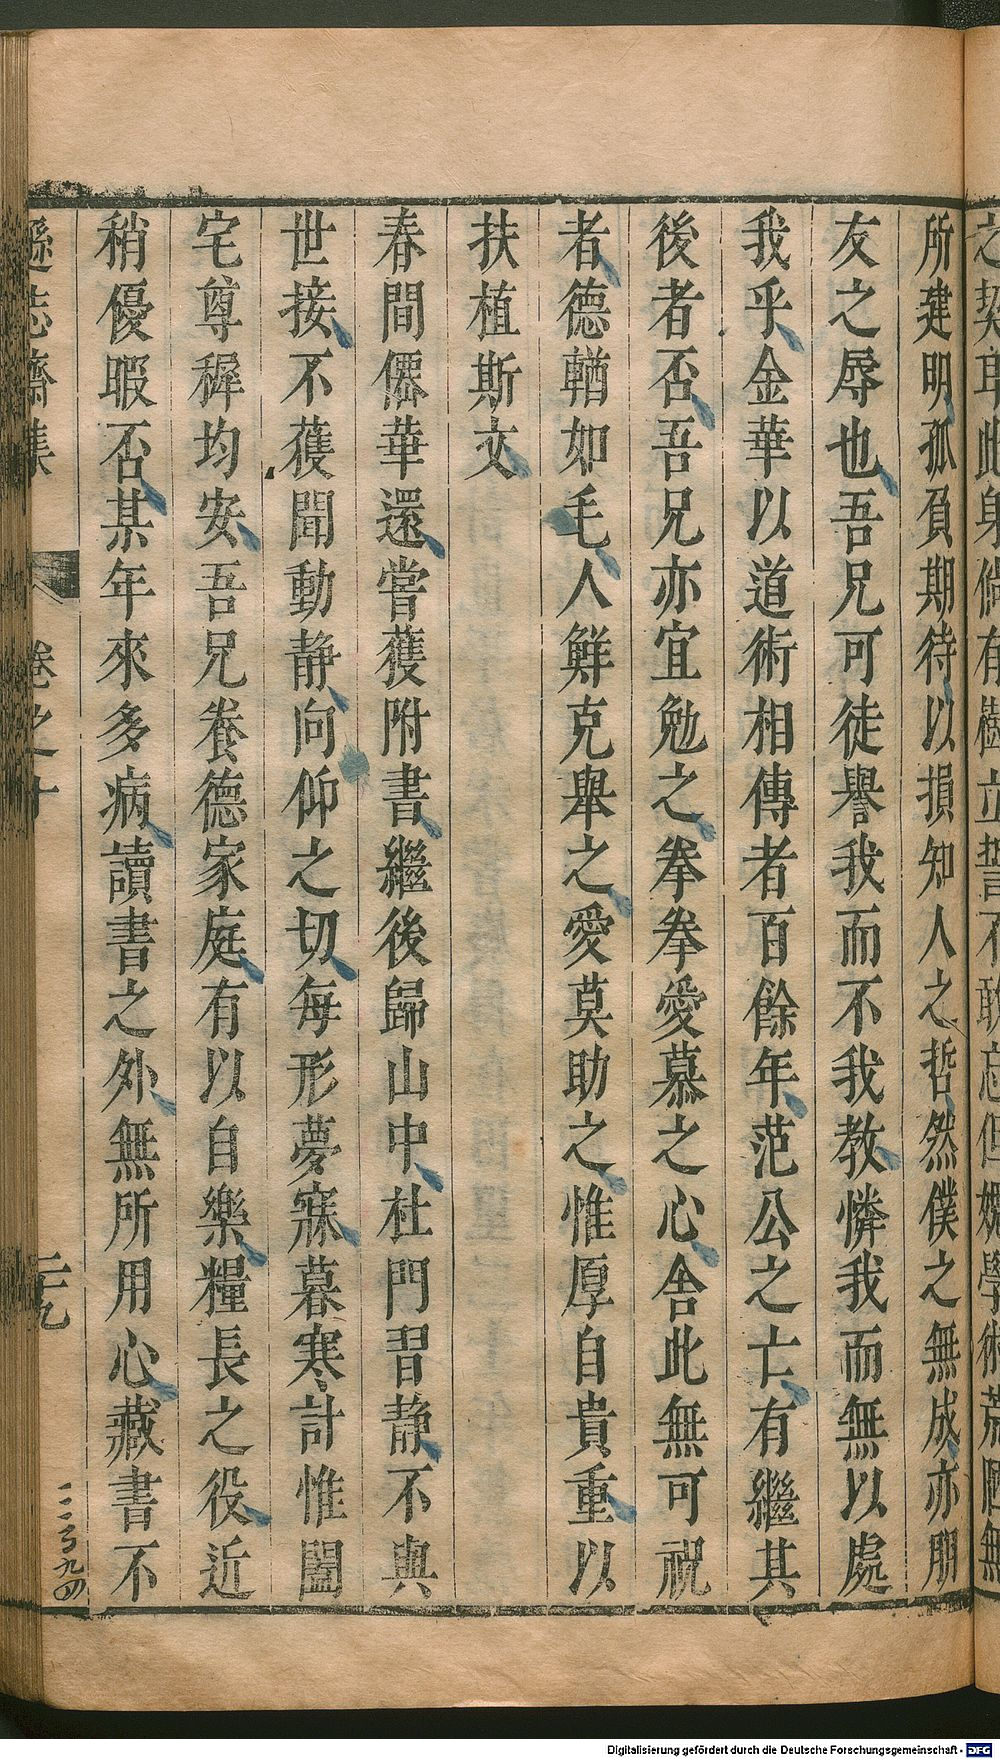 所建明孤負期待以損知人之哲然僕之無成亦朋
友之辱也吾兄可徒譽我而不我教憐我而無以處
我乎金華以道術相傳者百餘年范公之亡有繼其
後者否吾兄亦宜勉之拳拳愛慕之心舍此無可祝
者德輶如毛人鮮克舉之愛莫助之惟厚自貴重以
扶植斯文
春間僊華還嘗獲附書繼後歸山中杜門習静不與
世接不獲聞動静向仰之切每形夢寐暮寒計惟闔
宅尊穉均安吾兄養德家庭有以自樂糧長之役近
稍優暇否某年來多病讀書之外無所用心藏書不
遜志齋集
卷之十
二九
Digitalisierung gefördert durch die Deutsche Forschungsgemeinschaft - DFG